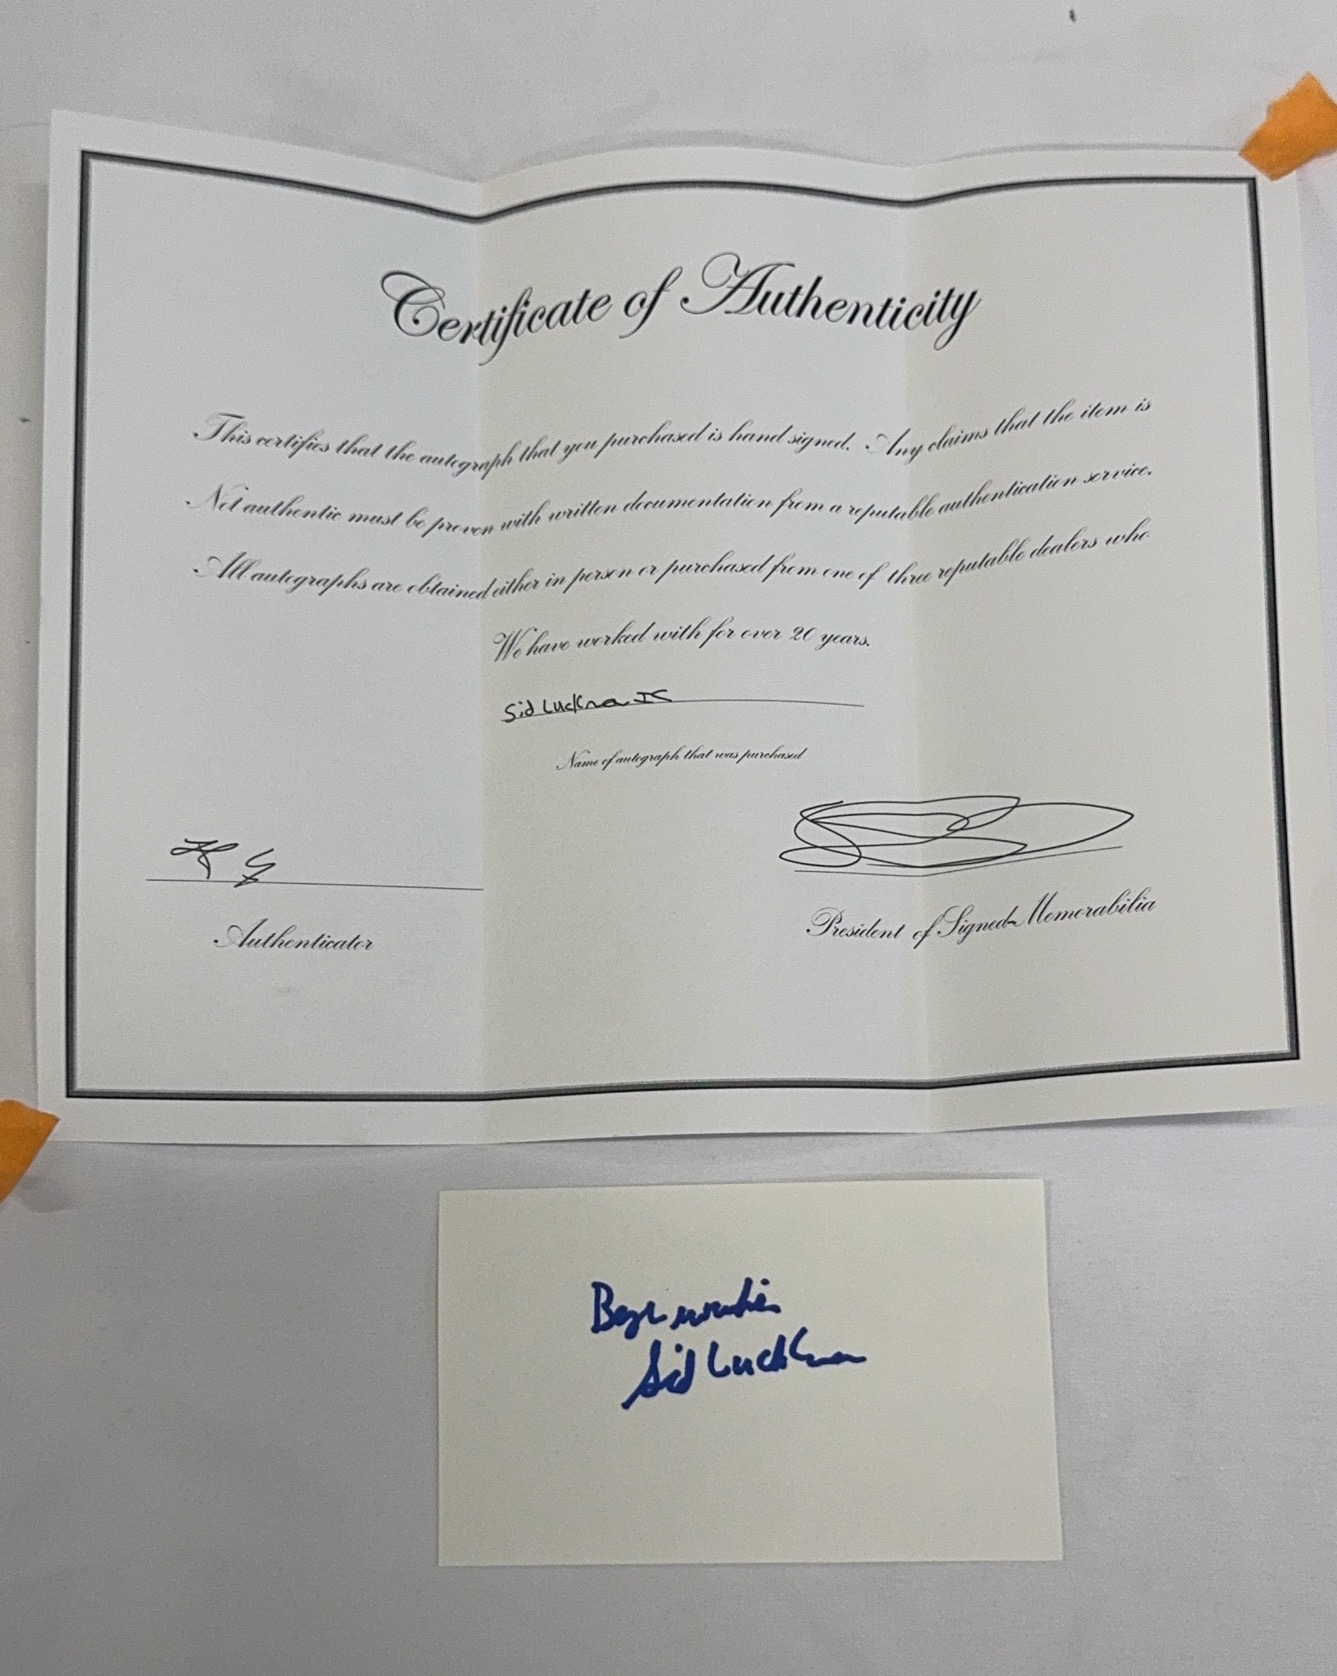 Certificate of Authenticity
This certifies that the autograph that you purchased is hand signed. Any claims that the item is
Not authentic must be proven with written documentation from a reputable authentication service.
All autographs are obtained either in person or purchased from one of three reputable dealers who
We have worked with for over 20 years.
Sid Luckman IC
Name of autograph that was purchased
Authenticator
President of Signed Memorabilia
Best wishes
Sid Luckman